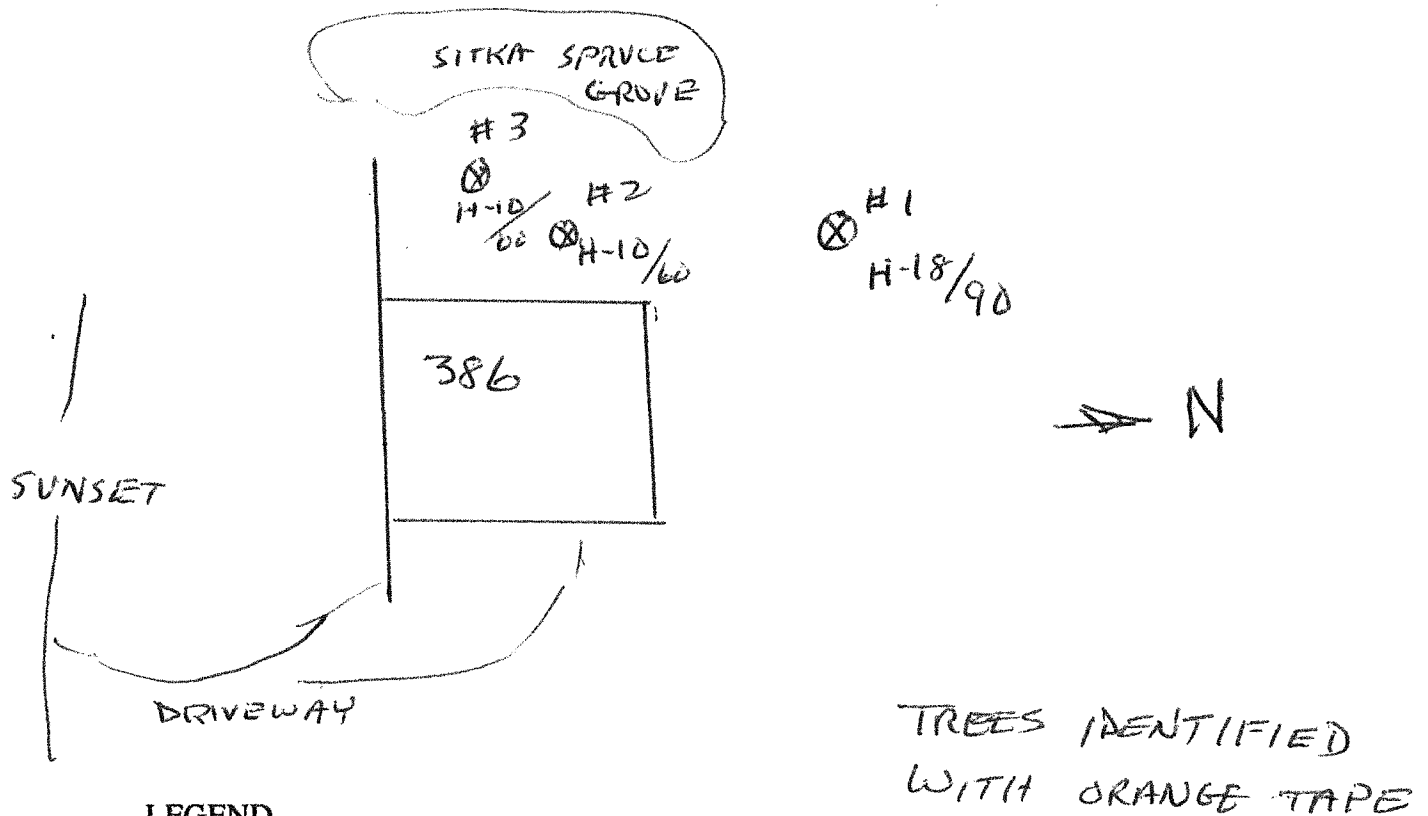 SITKA SPRUCE
GROVE
#3
H-10/
#2
H-10/60
#1
H-18/90
386
N
SUNSET
DRIVEWAY
TREES IDENTIFIED
WITH ORANGE TAPE
LEGEND